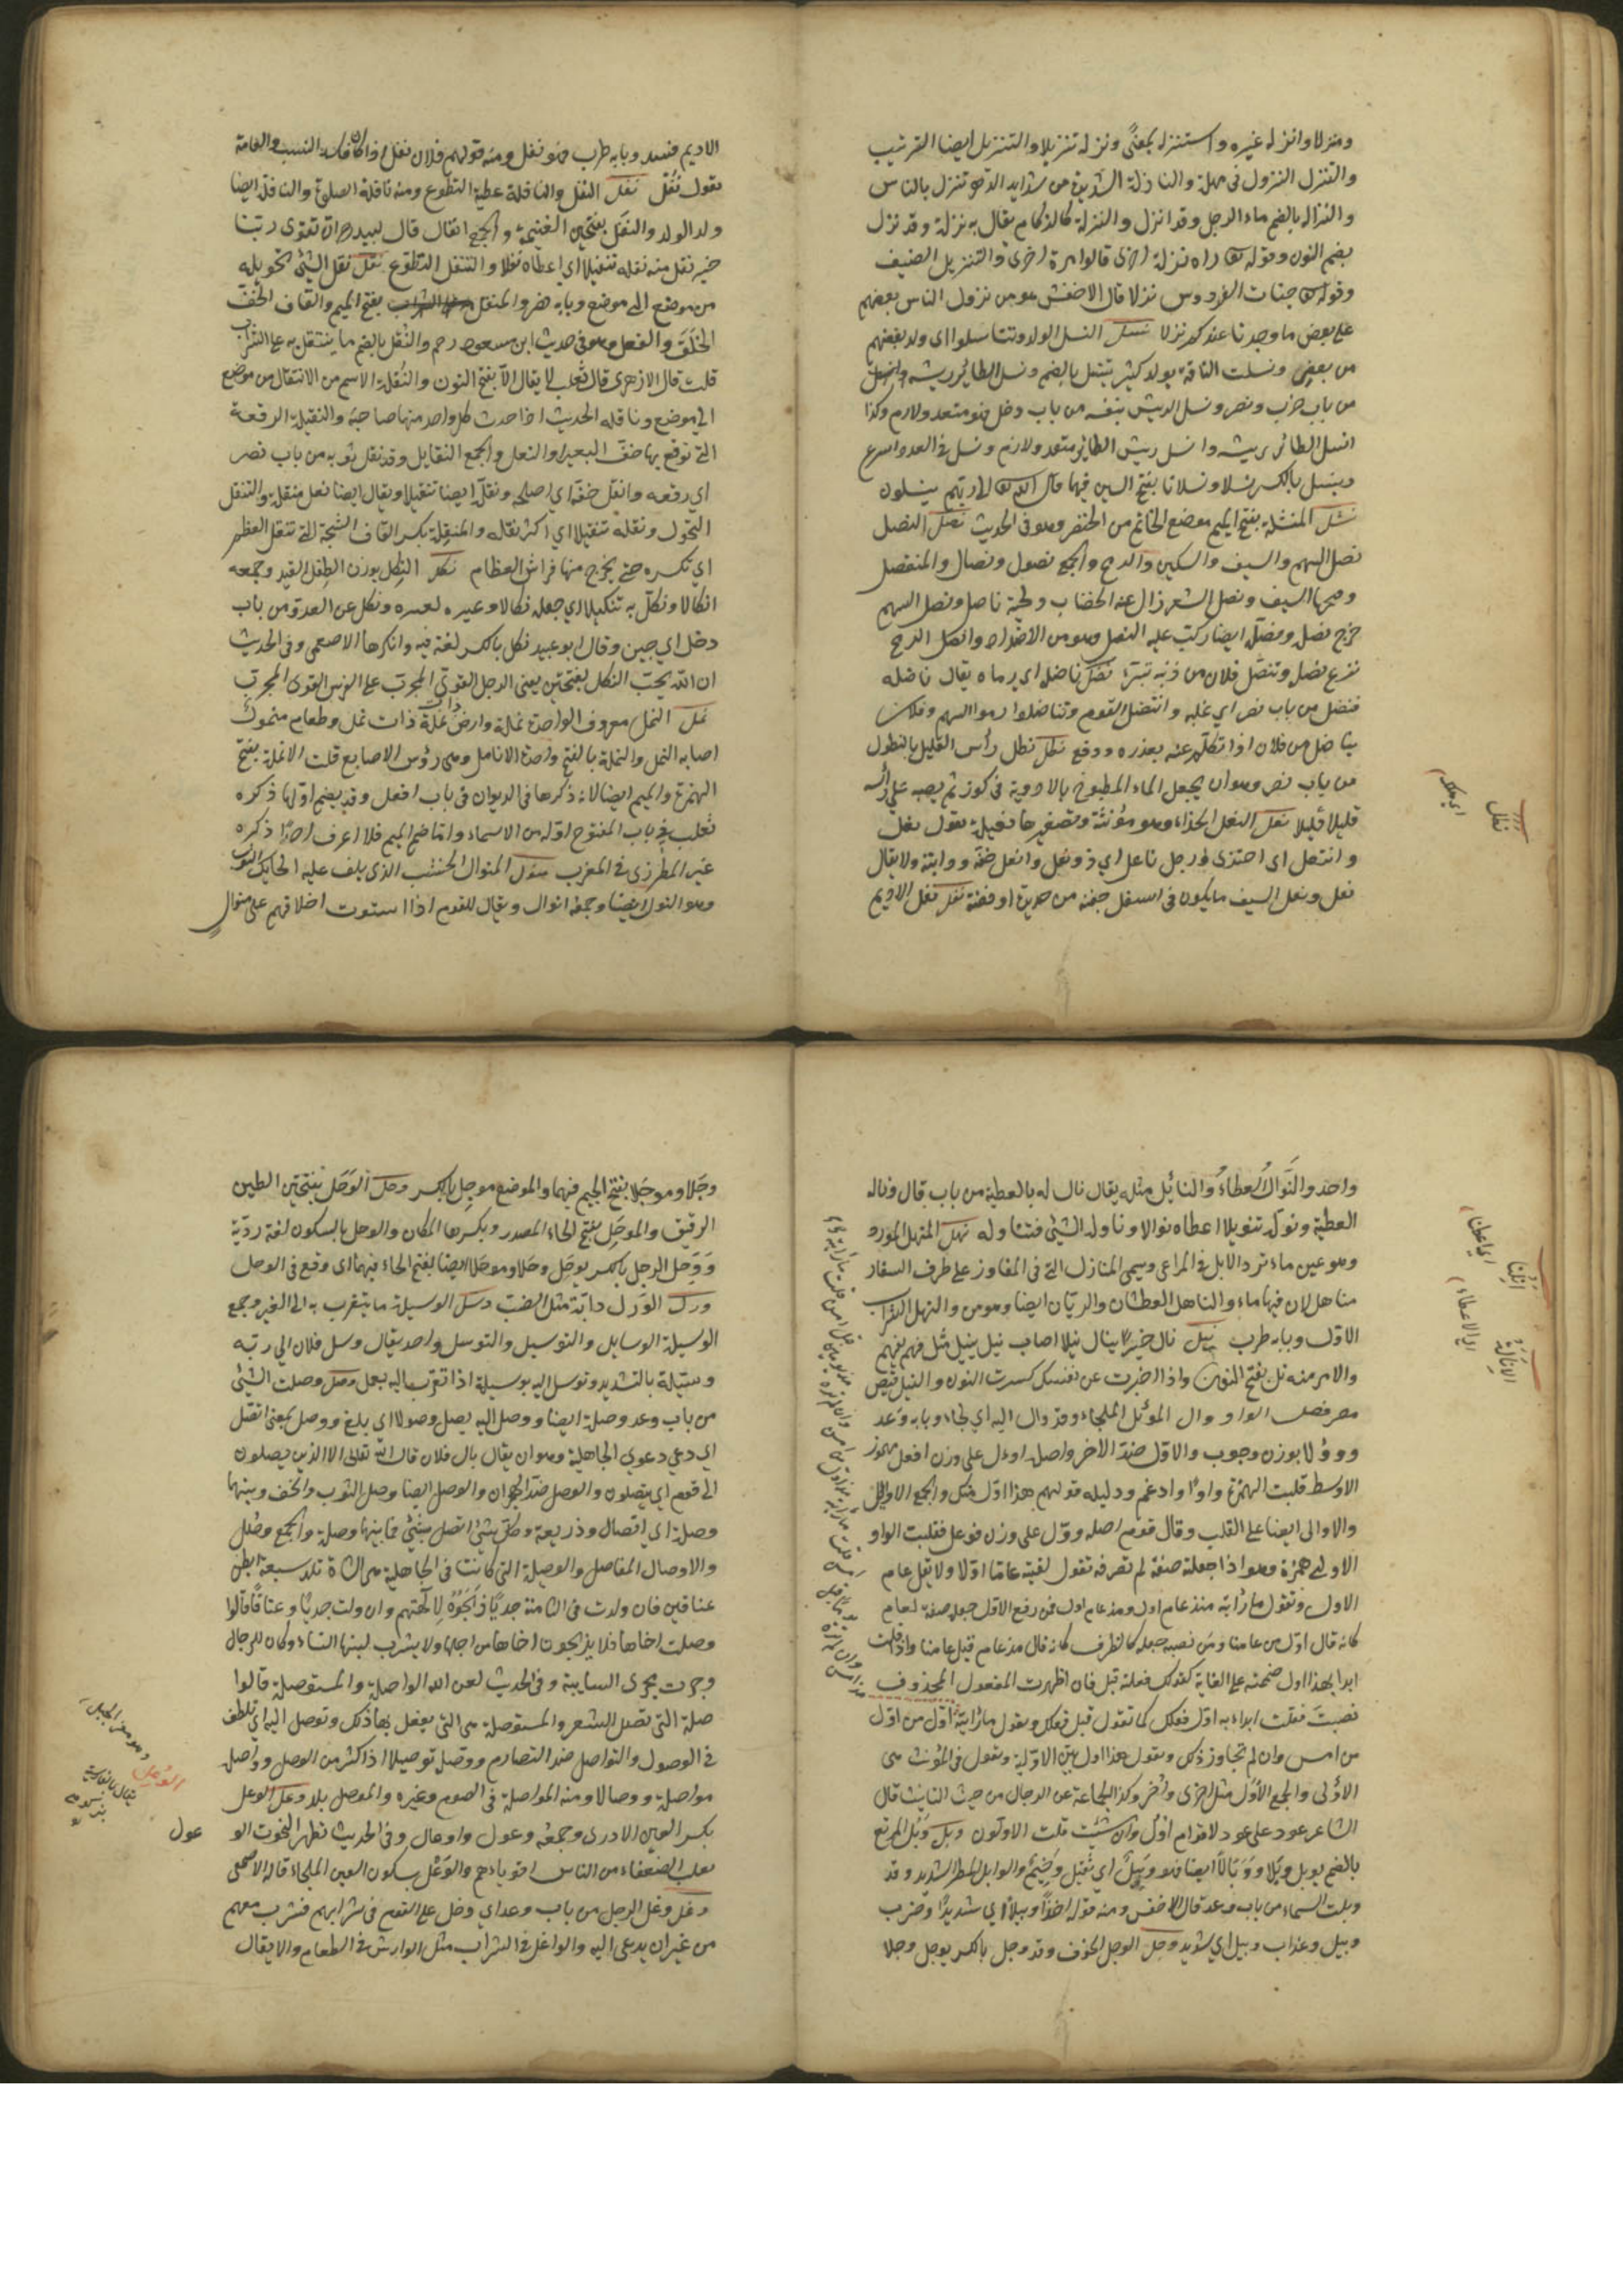 ومنزلا وانزله غيره واستنزله بمعنًى ونزله تنزيلا والتنزيل ايضا الترتيب
والتنزل النزول فى مهلة والنازلة الشديدة من شدايد الدهر تنزل بالناس
والنزالة بالضم ماء الرجل وقد انزل والنزلة كالزكام يقال به نزلة وقد نزل
بضم النون وقوله راه نزلة اخرى قالوا مرة اخرى والتنزيل الضيف
وقوله جنات الفردوس نزلا قال الاخفش هو من نزول الناس بعضهم
على بعض ما وجدنا عندكم نزلا نسل النسل الولد وتناسلوا اى ولد بعضهم
من بعض ونسلت الناقة بولد كثير تنسل بالضم ونسل الطائر ريشه
من باب ضرب ونصر ونسل الريش بنفسه من باب دخل فهو متعد ولازم وكذا
انسل الطائر ريشه وانسل ريش الطائر متعد ولازم ونسل فى العدو اسرع
وينسل بالكسر نسلا ونسلانا بفتح السين فيهما قال الله الى ربهم ينسلون
نشل المنشلة بفتح الميم موضع الخاتم من الخنصر وهو فى الحديث نصل النصل
نصل السهم والسيف والسكين والرمح والجمع نصول ونصال والمنصل
السيف ونصل الشعر زال عنه الخضاب ولحية ناصل ونصل السهم
خرج نصله ونصله ايضا ركب عليه النصل وهو من الاضداد وانصل الرمح
نزع نصله وتنصل فلان من ذنبه تبرّء نضل ناضله اى رماه يقال ناضله
فنضله من باب نصر اى غلبه وانتضل القوم وتناضلوا رموا السهم وفلان
يناضل من فلان اذا تكلم عنه بعذره ودفع نطل نطل رأس العليل بالنطول
من باب نصر وهو ان يجعل الماء المطبوخ بالادوية فى كوز ثم يصبه على رأسه
قليلا قليلا نعل النعل الحذاء وهو مؤنثة وتصغيرها نعيلة تقول نعل
وانتعل اى احتذى ورجل ناعل اى ذو نعل وانعل خفه ودابته ولا يقال
نعل ونعل السيف ما يكون فى اسفل جفنه من حديدة او فضة نغل نغل الاديم
نعال
الاديم فسد وبابه طرب فهو نغل ومنه قولهم فلان نغل اذا كان فاسد النسب والعامة
تقول نُغْل نفل النفل والنافلة عطية التطوع ومنه نافلة الصلوة والنافلة ايضا
ولد الولد والنفل بفتحتين الغنيمة والجمع انفال قال لبيد ان تقوى ربنا
خير نفل منه نفله تنفيلا اى اعطاه نفلا والتنفل التطوع نقل نقل الشئ تحويله
من موضع الى موضع وبابه نصر والمنقل بفتح الميم والقاف الخف
الخلق والنعل وهو فى حديث ابن مسعود رحم والنقل بالضم ما يتنقل به على الشراب
قلت قال الازهرى قال ثعلب لا يقال الا بفتح النون والنُقلة الاسم من الانتقال من موضع
الى موضع وناقله الحديث اذا حدث كل واحد منهما صاحبه والنقيلة الرقعة
التى ترقع بها خف البعير او النعل والجمع النقايل وقد نقل ثوبه من باب نصر
اى رقعه وانقل خفه اى اصلحه ونقله ايضا تنقيلا ويقال ايضا نعل منقلة والتنقل
التحول ونقله تنقيلا اى اكثر نقله والمنقلة بكسر القاف الشجة التى تنقل العظم
اى تكسره حتى يخرج منها فراش العظام نكل النِكل بوزن الطفل القيد وجمعه
انكالا ونكل به تنكيلا اى جعله نكالا وعبرة لغيره ونكل عن العدو من باب
دخل اى جبن وقال ابو عبيد نكل بالكسر لغة فيه وانكرها الاصمعى وفى الحديث
ان الله يحب النكل بفتحتين يعنى الرجل القوى المجرب على الفرس القوى المجرب
نمل النمل معروف الواحدة نملة وارض نملة ذات نمل وطعام منمول
اصابه النمل والنملة بالفتح واحدة الانامل وهى رؤس الاصابع قلت الانملة بفتح
الهمزة والميم ايضا لانه ذكرها فى الديوان فى باب افعل وقد يضم اولها ذكره
ثعلب فى باب المفتوح اوله من الاسماء واما ضم الميم فلا اعرف احدًا ذكره
غير المطرزى فى المغرب نول المنوال الخشب الذى يلف عليه الحايك الثوب
وهو النول ايضا وجمعه انوال ويقال للقوم اذا استوت اخلاقهم على منوال
واحد والنَّوَالُ العطاءُ والنائل مثله يقال نال له بالعطية من باب قال وناله
العطية ونوله تنويلا اعطاه نوالا وناوله الشئ فتناوله نهل المنهل المورد
وهو عين ماء ترد الابل فى المراعى ويسمى المنازل التى فى المفاوز على طرف السفار
مناهل لان فيها ماء والناهل العطشان والريان ايضا وهو من والنهل الشراب
الاول وبابه طرب نيل نال خيرا ينال نيلا اصاب نيل ينيل مثل فهم يفهم
والامر منه نل بفتح النون واذا اخبرت عن نفسك كسرت النون والنيل فيض
مصر فصل الواو وال الموئل الملجاء وقد وال اليه اى لجاء وبابه وَعد
ووؤلا بوزن وجوب والاول ضد الآخر واصله اوءل على وزن افعل مهموز
الاوسط قلبت الهمزة واوًا وادغم ودليله قولهم هذا اوّل منك والجمع الاوائل
والاوالى ايضا على القلب وقال قوم اصله ووّل على وزن فوعل فقلبت الواو
الاولى همزة وهو اذا جعلته صفة لم تصرفه تقول لقيته عاما اوّلا ولا يقل عام
الاول وتقول ما رأيته منذ عام اول ومذ عام اول فمن رفع الاول جعله صفة لعام
كانه قال اول من عامنا ومن نصبه جعله كالظرف كانه قال مذ عام قبل عامنا واذا قلت
ابدا بهذا اول ضممته على الغاية كقولك فعلته قبل فان اظهرت المفعول المحذوف
نصبت فقلت ابداء به اوّل فعلك كما تقول قبل فعلك وتقول ما رأيته اوّل من اوّل
من امس وان لم تجاوز ذلك وتقول هذا اول بين الاولية وتقول فى المؤنث هى
الاُولى والجمع الاُوَل مثل اخرى واُخَر وكذا لجماعة عن الرجال من حيث التانيث قال
الشاعر عود على عود لاقوام اوَل وان شئت قلت الاولون وبل وَبُل المرتع
بالضم يوبل وبلا ووبالا ايضا فهو وبيل اى ثقيل وخيم والوابل المطر الشديد وقد
وبلت السماء من باب وعد قال الاخفش ومنه قوله اخذًا وبيلًا اى شديدًا وضرب
وبيل وعذاب وبيل اى شديد وجل الوجل الخوف وقد وجل بالكسر يوجل وجلا
اَنِلْنَا
اى اعطنا
الاِنَالَةُ
اى الاعطاء
وجَلا وموجَلا بفتح الجيم فيهما والموضع موجِل بالكسر وحل الوَحَل بفتحتين الطين
الرقيق والموحَل بفتح الحاء المصدر وبكسرها المكان والوحل بالسكون لغة رديّة
وَوَحِل الرجل بالكسر يوحَل وحَلا وموحَلا ايضا بفتح الحاء فيهما اى وقع فى الوحل
ورل الوَرل دابة مثل الضب وسل الوسيلة ما يتقرب به الى الغير وجمع
الوسيلة الوسايل والتوسيل والتوسل واحد يقال وسل فلان الى ربه
وسيلة بالتشديد وتوسل اليه بوسيلة اذا تقرب اليه بعمل وصل وصلت الشئ
من باب وعد وصلة ايضا ووصل اليه يصل وصولا اى بلغ ووصل بمعنى اتصل
اى دعى دعوى الجاهلية وهو ان يقال يال فلان قال الله تعالى الا الذين يصلون
الى قوم اى يتصلون والوصل ضد الهجران والوصل ايضا وصل الثوب والخف وبينهما
وصلة اى اتصال وذريعة وكل شئ اتصل بشئ فما بينهما وصلة والجمع وصُل
والاوصال المفاصل والوصيلة التى كانت فى الجاهلية هى الشاة تلد سبعة ابطن
عناقين فان ولدت فى الثامنة جديًا ذبحوه لآلهتهم وان ولدت جديًا وعناقًا قالوا
وصلت اخاها فلا يذبحون اخاها من اجلها ولا يشرب لبنها النساء وكان للرجال
وجرت مجرى السايبة وفى الحديث لعن الله الواصلة والمستوصلة قالوا
صلة التى تصل الشعر والمستوصلة هى التى يفعل بها ذلك وتوصل اليه اى تلطف
فى الوصول والتواصل ضد التصارم ووصله توصيلا اذا اكثر من الوصل وواصله
مواصلة ووصالا ومنه المواصلة فى الصوم وغيره والموصل بلد وعل الوعل
بكسر العين الاروى وجمعه وعول واوعال وفى الحديث تظهر التحوت الو
عول
يغلب الضعفاء من الناس اقوياءهم والوَعْل بسكون العين الملجاء قاله الاصمعى
وغل وغل الرجل من باب وعد اى دخل على القوم فى شرابهم فشرب معهم
من غير ان يدعى اليه والواغل فى الشراب مثل الوارش فى الطعام والايغال
الوَعِل